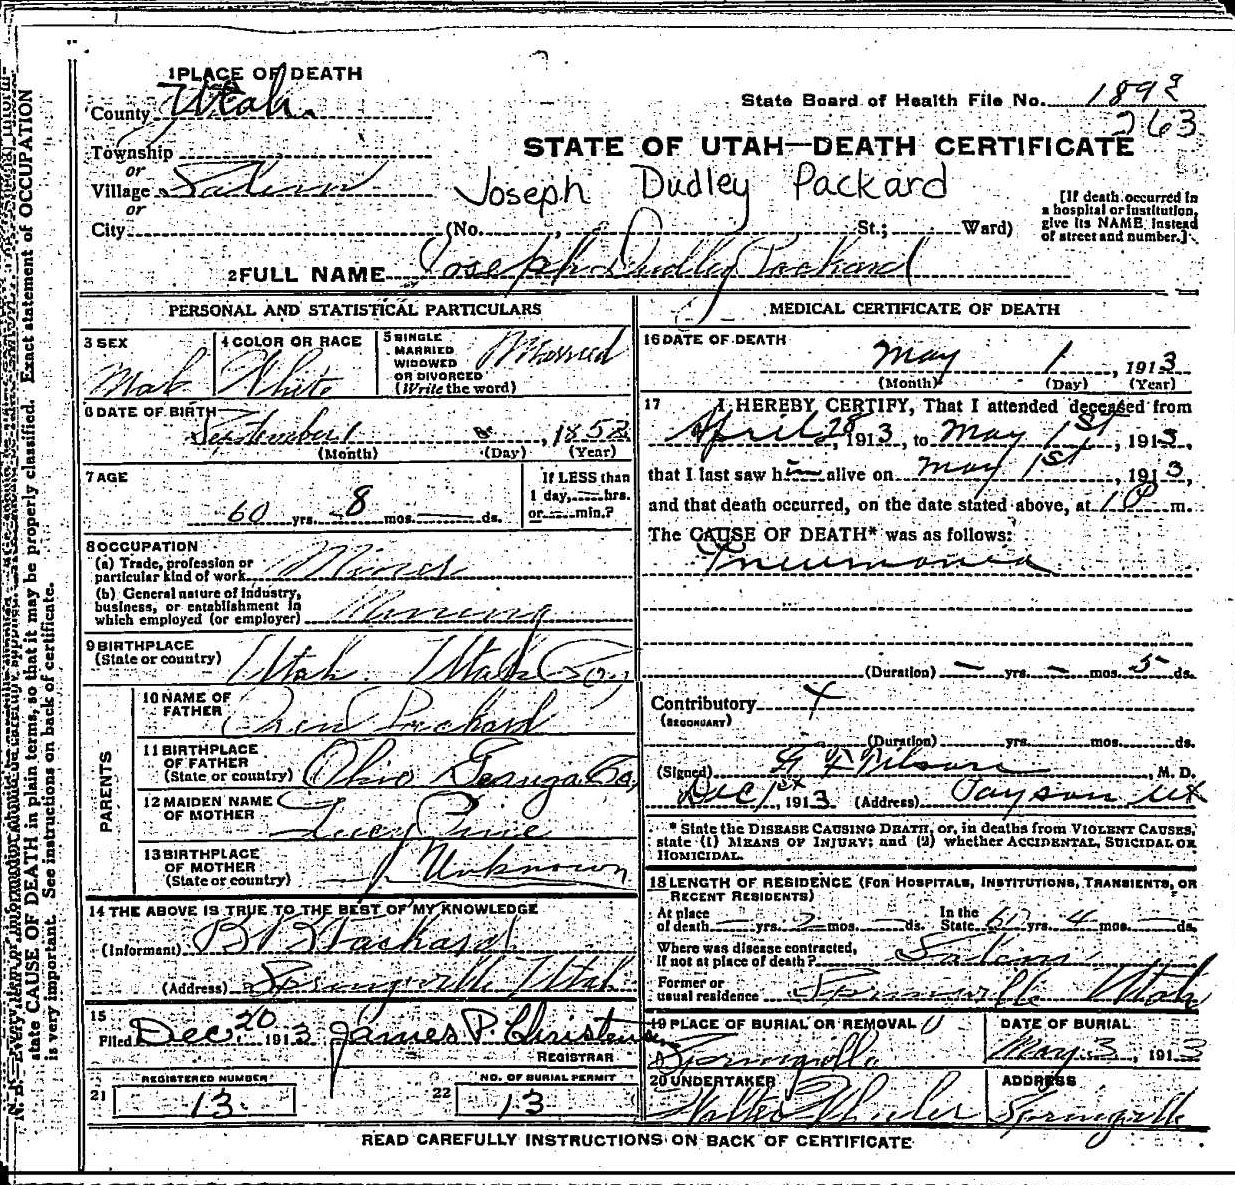 1 PLACE OF DEATH
County Utah.
Township
or
Village Salem
or
City
State Board of Health File No. 1892
263
STATE OF UTAH—DEATH CERTIFICATE
Joseph Dudley Packard
(No. , St.; Ward)
[If death occurred in
a hospital or institution,
give its NAME instead
of street and number.]
2 FULL NAME Joseph Dudley Packard
PERSONAL AND STATISTICAL PARTICULARS
3 SEX
Male
4 COLOR OR RACE
White
5 SINGLE
MARRIED
WIDOWED
OR DIVORCED
(Write the word)
Married
6 DATE OF BIRTH
September 1, 1852
(Month) (Day) (Year)
7 AGE
60 yrs. 8 mos. — ds.
If LESS than
1 day, — hrs.
or — min.?
8 OCCUPATION
(a) Trade, profession or
particular kind of work Miner
(b) General nature of industry,
business, or establishment in
which employed (or employer) Mining
9 BIRTHPLACE
(State or country) Utah Utah Co.
PARENTS
10 NAME OF
FATHER Oren Packard
11 BIRTHPLACE
OF FATHER
(State or country) Ohio Geauga Co.
12 MAIDEN NAME
OF MOTHER Lucy
13 BIRTHPLACE
OF MOTHER
(State or country) Unknown
14 THE ABOVE IS TRUE TO THE BEST OF MY KNOWLEDGE
(Informant) B B Packard
(Address) Springville Utah
15
Filed Dec. 20 1913 James P. Christensen
REGISTRAR
21 REGISTERED NUMBER
13.
22 NO. OF BURIAL PERMIT
13
MEDICAL CERTIFICATE OF DEATH
16 DATE OF DEATH
May 1, 1913
(Month) (Day) (Year)
17 I HEREBY CERTIFY, That I attended deceased from
April 28, 1913, to May 1st, 1913,
that I last saw him alive on May 1st, 1913,
and that death occurred, on the date stated above, at 1 P m.
The CAUSE OF DEATH* was as follows:
Pneumonia
(Duration) — yrs. — mos. 5 ds.
Contributory
(SECONDARY)
(Duration) yrs. mos. ds.
(Signed) , M. D.
Dec 1st, 1913 (Address) Payson Ut
* State the DISEASE CAUSING DEATH, or, in deaths from VIOLENT CAUSES,
state (1) MEANS OF INJURY; and (2) whether ACCIDENTAL, SUICIDAL OR
HOMICIDAL.
18 LENGTH OF RESIDENCE (FOR HOSPITALS, INSTITUTIONS, TRANSIENTS, OR
RECENT RESIDENTS)
At place
of death — yrs. 2 mos. ds.
In the
State yrs. 4 mos. — ds.
Where was disease contracted,
If not at place of death? Salem
Former or
usual residence Springville Utah
19 PLACE OF BURIAL OR REMOVAL
Springville
DATE OF BURIAL
May 3, 1913
20 UNDERTAKER
Walter Wheeler
ADDRESS
Springville
READ CAREFULLY INSTRUCTIONS ON BACK OF CERTIFICATE
state CAUSE OF DEATH in plain terms, so that it may be properly classified. Exact statement of OCCUPATION
is very important. See instructions on back of certificate.